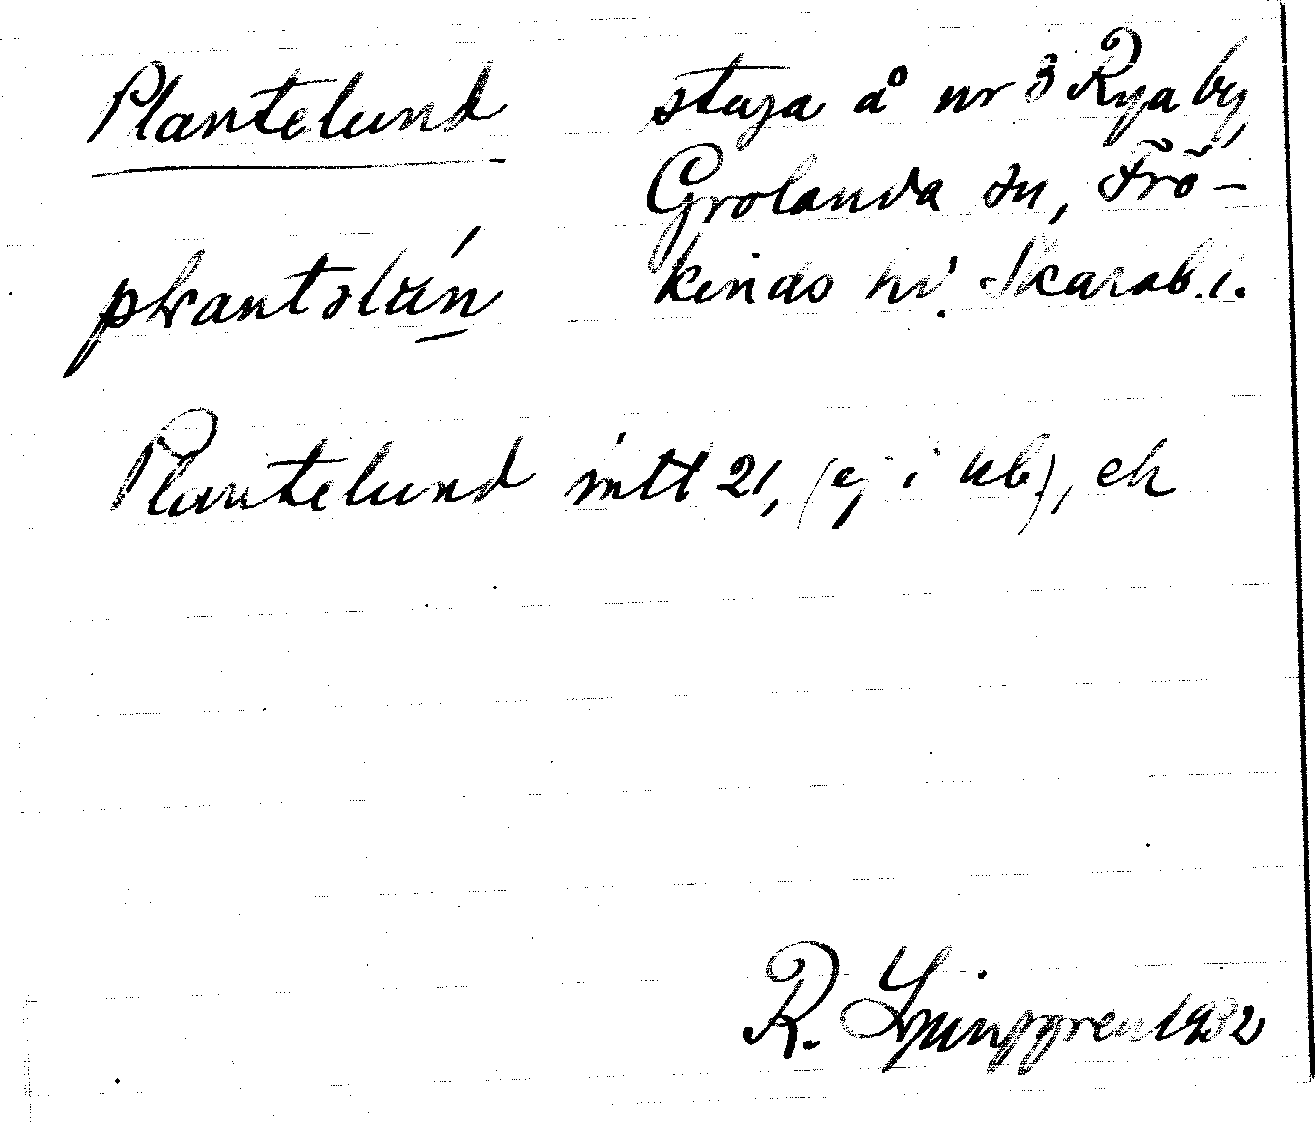 Plantelund
staga å nr 3 Rya by,
Grolanda sn, Frö-
kinds hd. Skarab. l.
plantslún
Plantelund intl 21, (ej i kb), ek
R. Ljunggren 1932